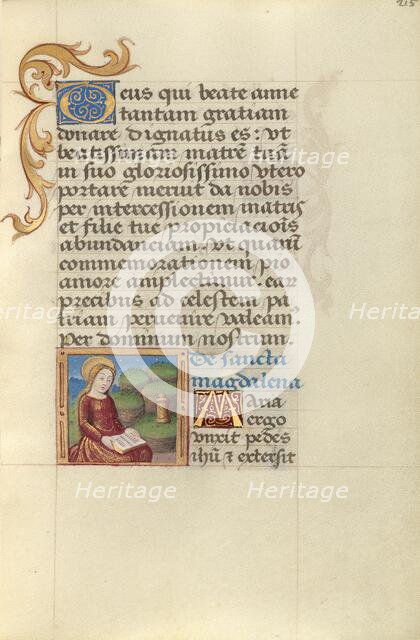 215
Deus qui beate anne
tantam gratiam
donare dignatus es: ut
beatissimam matrē tuā
in suo gloriosissimo utero
portare meruit da nobis
per intercessionem matris
et filie tue propiciaciōis
abundanciam. ut quarū
commemorationem pio
amore amplectimur. ear
precibus ad celestem pa
triam peruenire valeam.
Per dominum nostrum.
De sancta
magdalena
Maria
ergo
unxit pedes
ihū & extersit
Heritage
Heritage
Heritage
Heritage
Heritage
Heritage